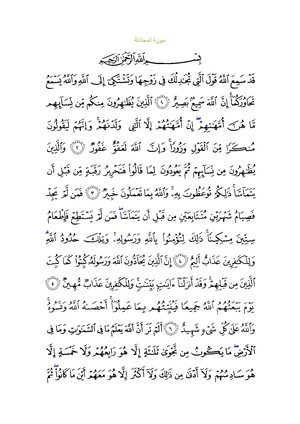 سورة المجادلة
بِسْمِ اللَّهِ الرَّحْمَٰنِ الرَّحِيمِ
قَدْ سَمِعَ اللَّهُ قَوْلَ الَّتِي تُجَادِلُكَ فِي زَوْجِهَا وَتَشْتَكِي إِلَى اللَّهِ وَاللَّهُ يَسْمَعُ
تَحَاوُرَكُمَا إِنَّ اللَّهَ سَمِيعٌ بَصِيرٌ ١ الَّذِينَ يُظَاهِرُونَ مِنكُم مِّن نِّسَائِهِم
مَّا هُنَّ أُمَّهَاتِهِمْ إِنْ أُمَّهَاتُهُمْ إِلَّا اللَّائِي وَلَدْنَهُمْ وَإِنَّهُمْ لَيَقُولُونَ
مُنكَرًا مِّنَ الْقَوْلِ وَزُورًا وَإِنَّ اللَّهَ لَعَفُوٌّ غَفُورٌ ٢ وَالَّذِينَ
يُظَاهِرُونَ مِن نِّسَائِهِمْ ثُمَّ يَعُودُونَ لِمَا قَالُوا فَتَحْرِيرُ رَقَبَةٍ مِّن قَبْلِ أَن
يَتَمَاسَّا ذَٰلِكُمْ تُوعَظُونَ بِهِ وَاللَّهُ بِمَا تَعْمَلُونَ خَبِيرٌ ٣ فَمَن لَّمْ يَجِدْ
فَصِيَامُ شَهْرَيْنِ مُتَتَابِعَيْنِ مِن قَبْلِ أَن يَتَمَاسَّا فَمَن لَّمْ يَسْتَطِعْ فَإِطْعَامُ
سِتِّينَ مِسْكِينًا ذَٰلِكَ لِتُؤْمِنُوا بِاللَّهِ وَرَسُولِهِ وَتِلْكَ حُدُودُ اللَّهِ
وَلِلْكَافِرِينَ عَذَابٌ أَلِيمٌ ٤ إِنَّ الَّذِينَ يُحَادُّونَ اللَّهَ وَرَسُولَهُ كُبِتُوا كَمَا كُبِتَ
الَّذِينَ مِن قَبْلِهِمْ وَقَدْ أَنزَلْنَا آيَاتٍ بَيِّنَاتٍ وَلِلْكَافِرِينَ عَذَابٌ مُّهِينٌ ٥
يَوْمَ يَبْعَثُهُمُ اللَّهُ جَمِيعًا فَيُنَبِّئُهُم بِمَا عَمِلُوا أَحْصَاهُ اللَّهُ وَنَسُوهُ
وَاللَّهُ عَلَىٰ كُلِّ شَيْءٍ شَهِيدٌ ٦ أَلَمْ تَرَ أَنَّ اللَّهَ يَعْلَمُ مَا فِي السَّمَاوَاتِ وَمَا فِي
الْأَرْضِ مَا يَكُونُ مِن نَّجْوَىٰ ثَلَاثَةٍ إِلَّا هُوَ رَابِعُهُمْ وَلَا خَمْسَةٍ إِلَّا
هُوَ سَادِسُهُمْ وَلَا أَدْنَىٰ مِن ذَٰلِكَ وَلَا أَكْثَرَ إِلَّا هُوَ مَعَهُمْ أَيْنَ مَا كَانُوا ثُمَّ